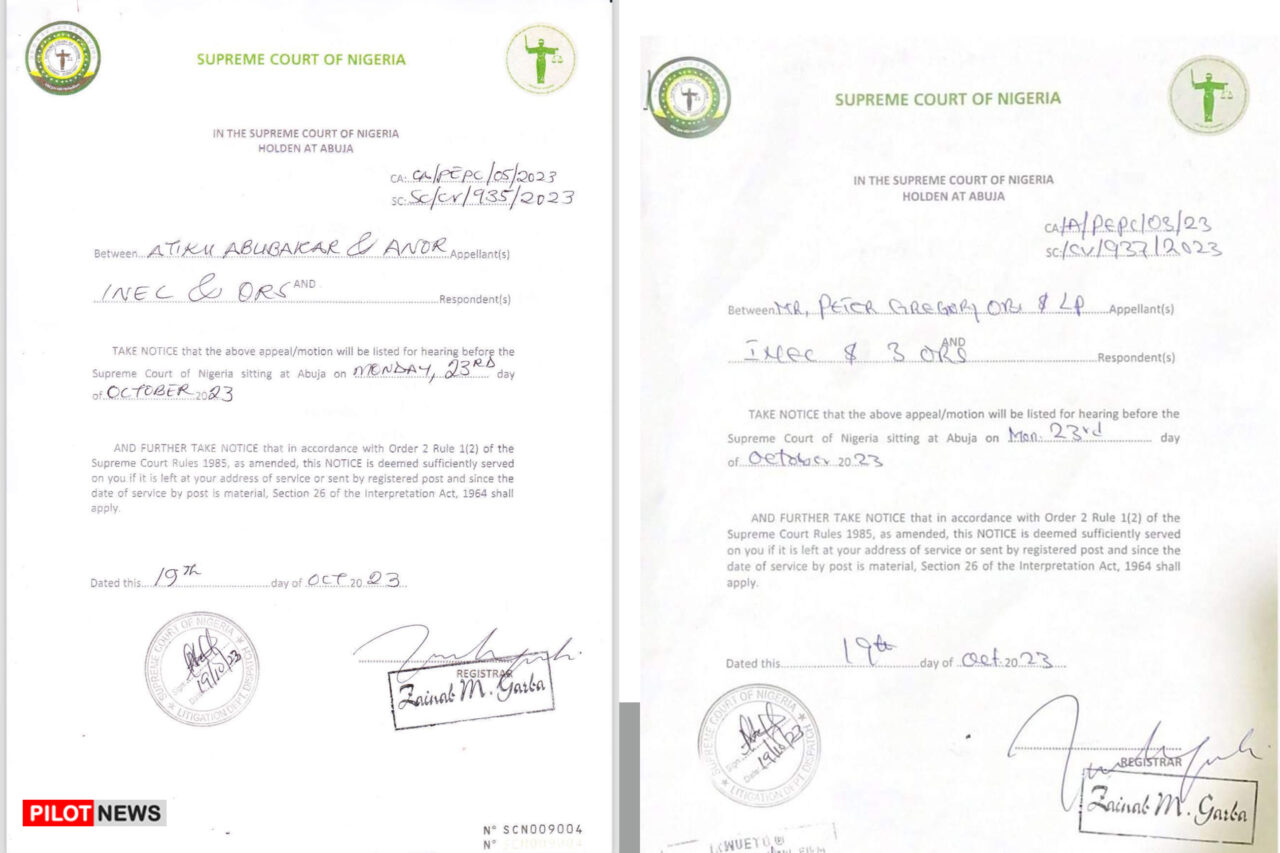 SUPREME COURT OF NIGERIA
IN THE SUPREME COURT OF NIGERIA
HOLDEN AT ABUJA
CA: CA/PEPC/05/2023
SC: SC/CV/935/2023
Between ATIKU ABUBAKAR & ANOR Appellant(s)
AND
INEC & ORS Respondent(s)
TAKE NOTICE that the above appeal/motion will be listed for hearing before the
Supreme Court of Nigeria sitting at Abuja on MONDAY, 23RD day
of OCTOBER 2023
AND FURTHER TAKE NOTICE that in accordance with Order 2 Rule 1(2) of the
Supreme Court Rules 1985, as amended, this NOTICE is deemed sufficiently served
on you if it is left at your address of service or sent by registered post and since the
date of service by post is material, Section 26 of the Interpretation Act, 1964 shall
apply.
Dated this 19th day of OCT 2023
SUPREME COURT OF NIGERIA
Sign
19/10/23
LITIGATION DEPT DISPATCH
REGISTRAR
Zainab M. Garba
PILOT NEWS
N° SCN009004
N° SCN009004
SUPREME COURT OF NIGERIA
IN THE SUPREME COURT OF NIGERIA
HOLDEN AT ABUJA
CA/A/PEPC/03/23
SC:/CV/937/2023
Between MR, PETER GREGORY OBI & LP Appellant(s)
AND
INEC & 3 ORS Respondent(s)
TAKE NOTICE that the above appeal/motion will be listed for hearing before the
Supreme Court of Nigeria sitting at Abuja on Mon. 23rd day
of October 2023
AND FURTHER TAKE NOTICE that in accordance with Order 2 Rule 1(2) of the
Supreme Court Rules 1985, as amended, this NOTICE is deemed sufficiently served
on you if it is left at your address of service or sent by registered post and since the
date of service by post is material, Section 26 of the Interpretation Act, 1964 shall
apply.
Dated this 19th day of Oct. 2023
SUPREME COURT OF NIGERIA
Sign
Date 19/10/23
LITIGATION DEPT DISPATCH
REGISTRAR
Zainab M. Garba